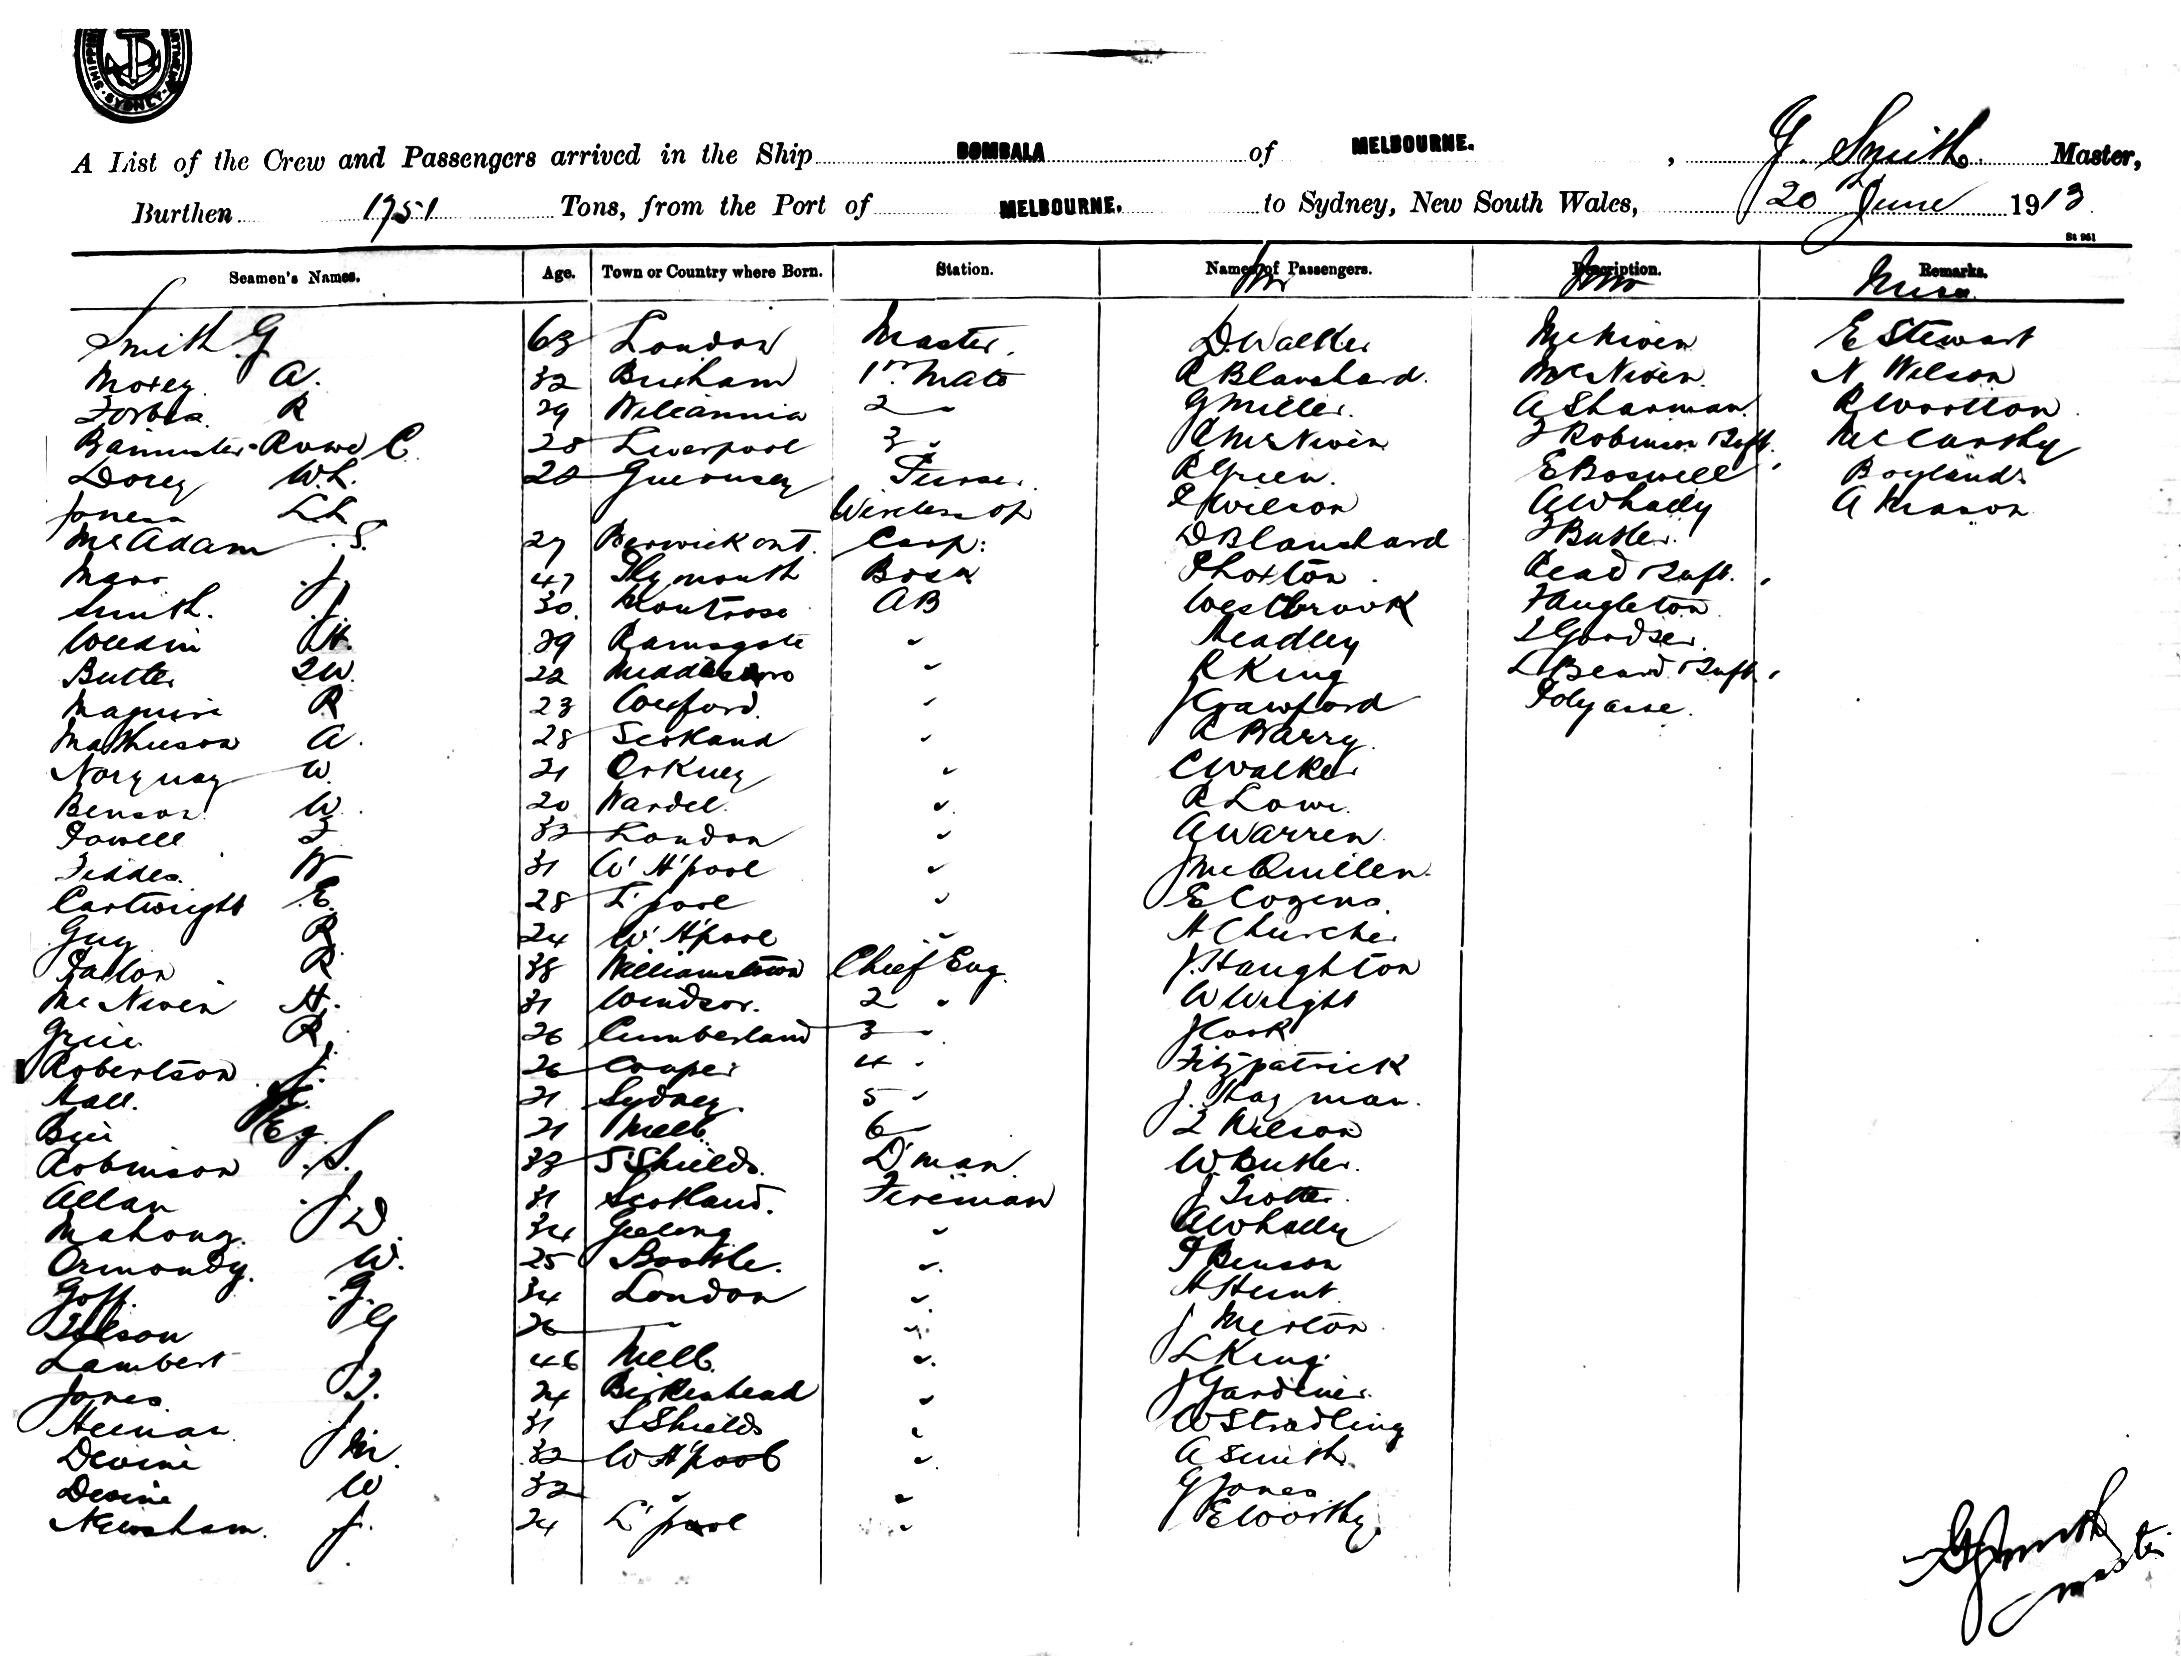 SHIPPING · SYDNEY
A List of the Crew and Passengers arrived in the Ship BOMBALA of MELBOURNE. , G. Smith. Master,
Burthen 1751 Tons, from the Port of MELBOURNE. to Sydney, New South Wales, 20th June 1913.
St 961
Seamen's Names. Age. Town or Country where Born. Station. Names of Passengers. Description. Remarks.
Miss
Smith G 63 London Master. D. Walker McNiven E Stewart
Morey A. 32 Brixham 1st Mate R Blanchard. McNiven N Wilson
Forbes R 29 Wilcannia 2 " G Miller. A Sharman. R Wootton
Bannister-Rowe C. 28 Liverpool 3 " McNiven F Robinson & Inft. McCarthy
Dorey W.L. 20 Guernsey Purser. R Green. E Boswell Boylands
Jones L.L. Wireless Op Wilson A Whally A Mason
McAdam S. 27 Carp: D Blanchard F Butler.
J. 47 Plymouth Bosn Hoxton Read & Inft.
Smith. J. 30. Montrose AB Westbrook Haugleton
H. 39 Ramsgate " Headley
Butler 22 Middlesbro " R King L Beard & Inft.
Maguire R 23 Wexford. " J Crawford
Mathieson A. 28 Scotland " R Barry.
Norquay W. 21 Orkney " C Walker
Benson W. 20 Wardell. " R Lowe.
Powell F 32 London " A Warren.
Fiddes. W 31 W' H'pool " J McQuillen.
Cartwright E. 28 L'pool " E Cozens.
Guy R 24 W' H'pool " H Churcher
R 38 Williamstown Chief Eng. J. Haughton
McNiven H. 31 Windsor. 2 " W Wright
R. 26 Cumberland 3 " J Cook
Robertson J. 26 Couper 4 " Fitzpatrick
Hall. 21 Sydney. 5 " J. Hayman.
21 Melb. 6 " Wilson
Robinson S. 33 S Shields. D'man. W Butler.
Allan J 31 Scotland. Fireman J Trotter.
Mahony. D. 34 Geelong " A Whally
Ormondy. W. 25 Bootle. " Benson
Goff. G. 34 London " H Hunt
G 26 " " J Merton
Lambert J 46 Melb. " L King.
Jones. T. 24 Birkenhead " J Gardiner.
J 31 S Shields " W Stradling
Devine M. 32 W H'pool " A Smith.
Devine W 32 " " G Jones
Newsham. J. 24 L'pool " E Worthy.
G Smith
Master